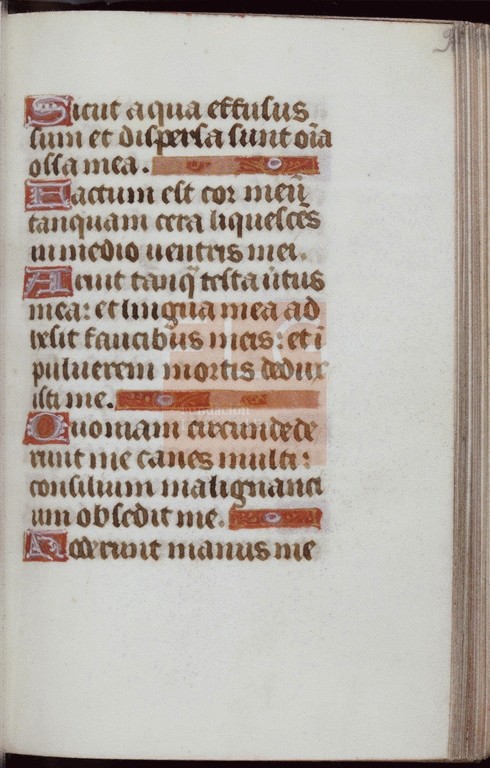 Sicut aqua effusus
sum et dispersa sunt oīa
ossa mea.
Factum est cor meū
tanquam cera liquescēs
in medio uentris mei.
Aruit tanq̄ testa uirtus
mea: et lingua mea ad
hesit faucibus meis: et ī
puluerem mortis dedux
isti me.
Quoniam circundede
runt me canes multi:
consilium malignanti
um obsedit me.
Foderunt manus me